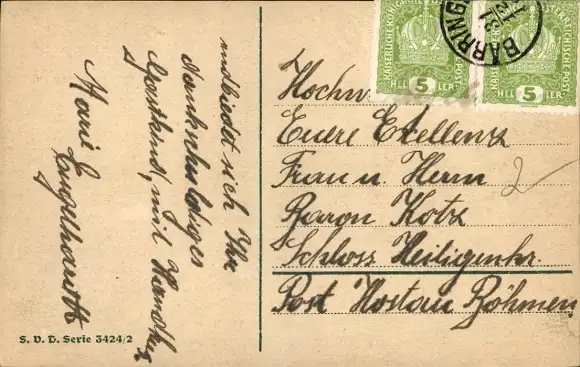 und bietet sich Ihr
dankschuldiges
Gastkind, mit Handkuß
Marie Engelhardt
S. V. D. Serie 3424/2
KAISERLICHE KÖNIGLICHE ÖSTERREICHISCHE POST
5 5
HELLER
KAISERLICHE KÖNIGLICHE ÖSTERREICHISCHE POST
5 5
HELLER
BÄRRING
Hochw
Euere Exellenz
Frau u Herrn
Baron Kotz
Schloss Heiligenkr.
Post Hostau Böhmen
2